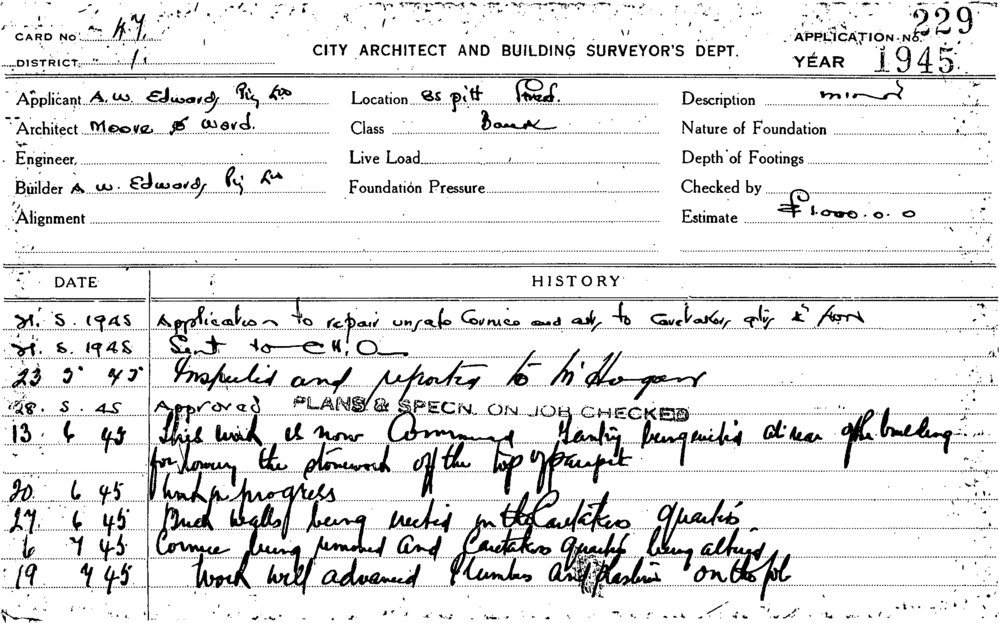 CARD No 47.
DISTRICT 1.
CITY ARCHITECT AND BUILDING SURVEYOR'S DEPT.
APPLICATION No. 229
YEAR 1945
Applicant A.W. Edwards Pty Ltd
Architect Moore & Ward.
Engineer
Builder A W. Edwards Pty Ltd
Alignment
Location 85 pitt Street.
Class Bank
Live Load
Foundation Pressure
Description minor
Nature of Foundation
Depth of Footings
Checked by
Estimate £1.000.0.0
DATE HISTORY
21. 5. 1945 Application to repair unsafe Cornice and to caretakers
21. 5. 1945 Sent to C.H.O.
23 5 45 Inspected and reported to Mr Hogan
28. 5. 45 Approved PLANS & SPECN. ON JOB CHECKED
13. 6 45 This work is now Commenced Gantry being erected at rear of the building
for lowering the stonework off the top of parapet
20. 6 45 Work in progress
27. 6 45 Brick walls being erected in the Caretakers Quarters
6 7 45 Cornice being removed and Caretakers Quarters being altered
19 7 45 Work well advanced Plumbers and plasterers on the job